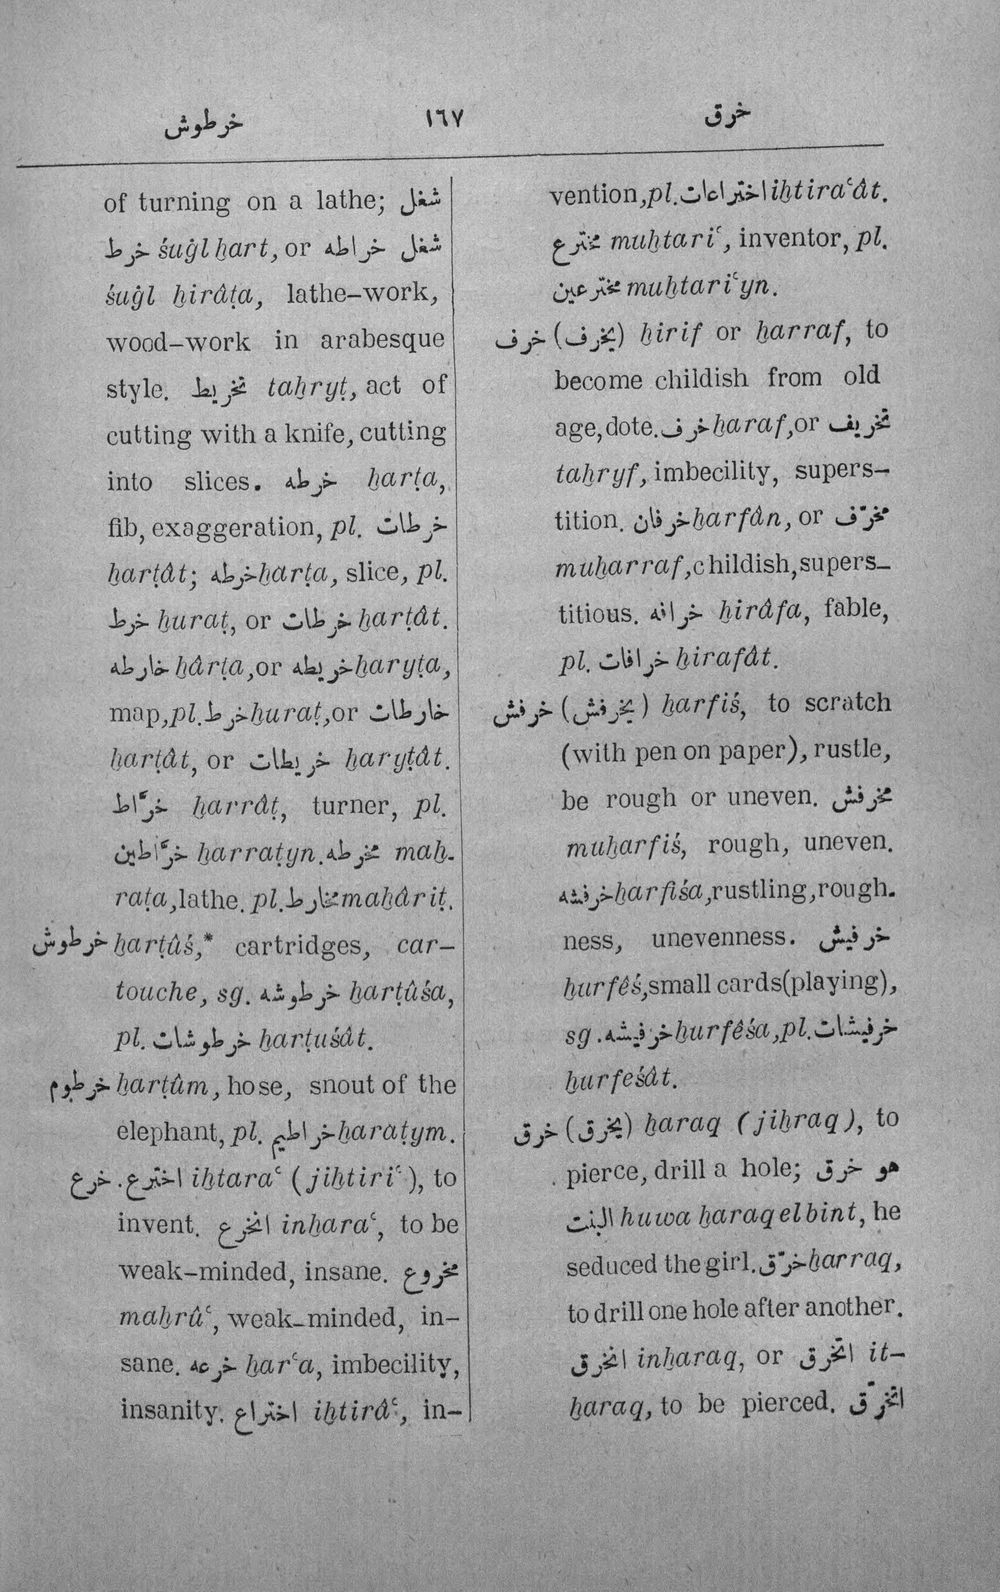 خرطوش ١٦٧ خرق
of turning on a lathe; شغل
خرط śuġl ḫart, or شغل خراطه
śuġl ḫirâṭa, lathe-work,
wood-work in arabesque
style. تخريط taḫryṭ, act of
cutting with a knife, cutting
into slices. خرطه ḫarṭa,
fib, exaggeration, pl. خرطات
ḫarṭât; خرطه ḫarṭa, slice, pl.
خرط ḫuraṭ, or خرطات ḫarṭât.
خارطه ḫârṭa, or خريطه ḫaryṭa,
map, pl. خرط ḫuraṭ, or خارطات
ḫarṭât, or خريطات ḫaryṭât.
خرّاط ḫarrâṭ, turner, pl.
خرّاطين ḫarraṭyn. مخرطه maḫ-
raṭa, lathe. pl. مخارط maḫâriṭ.
خرطوش ḫarṭûś,* cartridges, car-
touche, sg. خرطوشه ḫarṭûśa,
pl. خرطوشات ḫarṭuśât.
خرطوم ḫarṭûm, hose, snout of the
elephant, pl. خراطيم ḫaraṭym.
خرع. اخترع iḫtaraʿ (jiḫtiriʿ), to
invent. انخرع inḫaraʿ, to be
weak-minded, insane. مخروع
maḫrûʿ, weak-minded, in-
sane. خرعه ḫarʿa, imbecility,
insanity. اختراع iḫtirâʿ, in-
vention, pl. اختراعات iḫtiraʿât.
مخترع muḫtariʿ, inventor, pl.
مخترعين muḫtariʿyn.
خرف (يخرف) ḫirif or ḫarraf, to
become childish from old
age, dote. خرف ḫaraf, or تخريف
taḫryf, imbecility, supers-
tition. خرفان ḫarfân, or مخرّف
muḫarraf, childish, supers-
titious. خرافه ḫirâfa, fable,
pl. خرافات ḫirafât.
خرفش (يخرفش) ḫarfiś, to scratch
(with pen on paper), rustle,
be rough or uneven. مخرفش
muḫarfiś, rough, uneven.
خرفشه ḫarfiśa, rustling, rough-
ness, unevenness. خرفيش
ḫurfêś, small cards (playing),
sg. خرفيشه ḫurfêśa, pl. خرفيشات
ḫurfeśât.
خرق (يخرق) ḫaraq (jiḫraq), to
pierce, drill a hole; هو خرق
البنت huwa ḫaraq el bint, he
seduced the girl. خرّق ḫarraq,
to drill one hole after another.
انخرق inḫaraq, or اتخرق it-
ḫaraq, to be pierced. اتخرّق